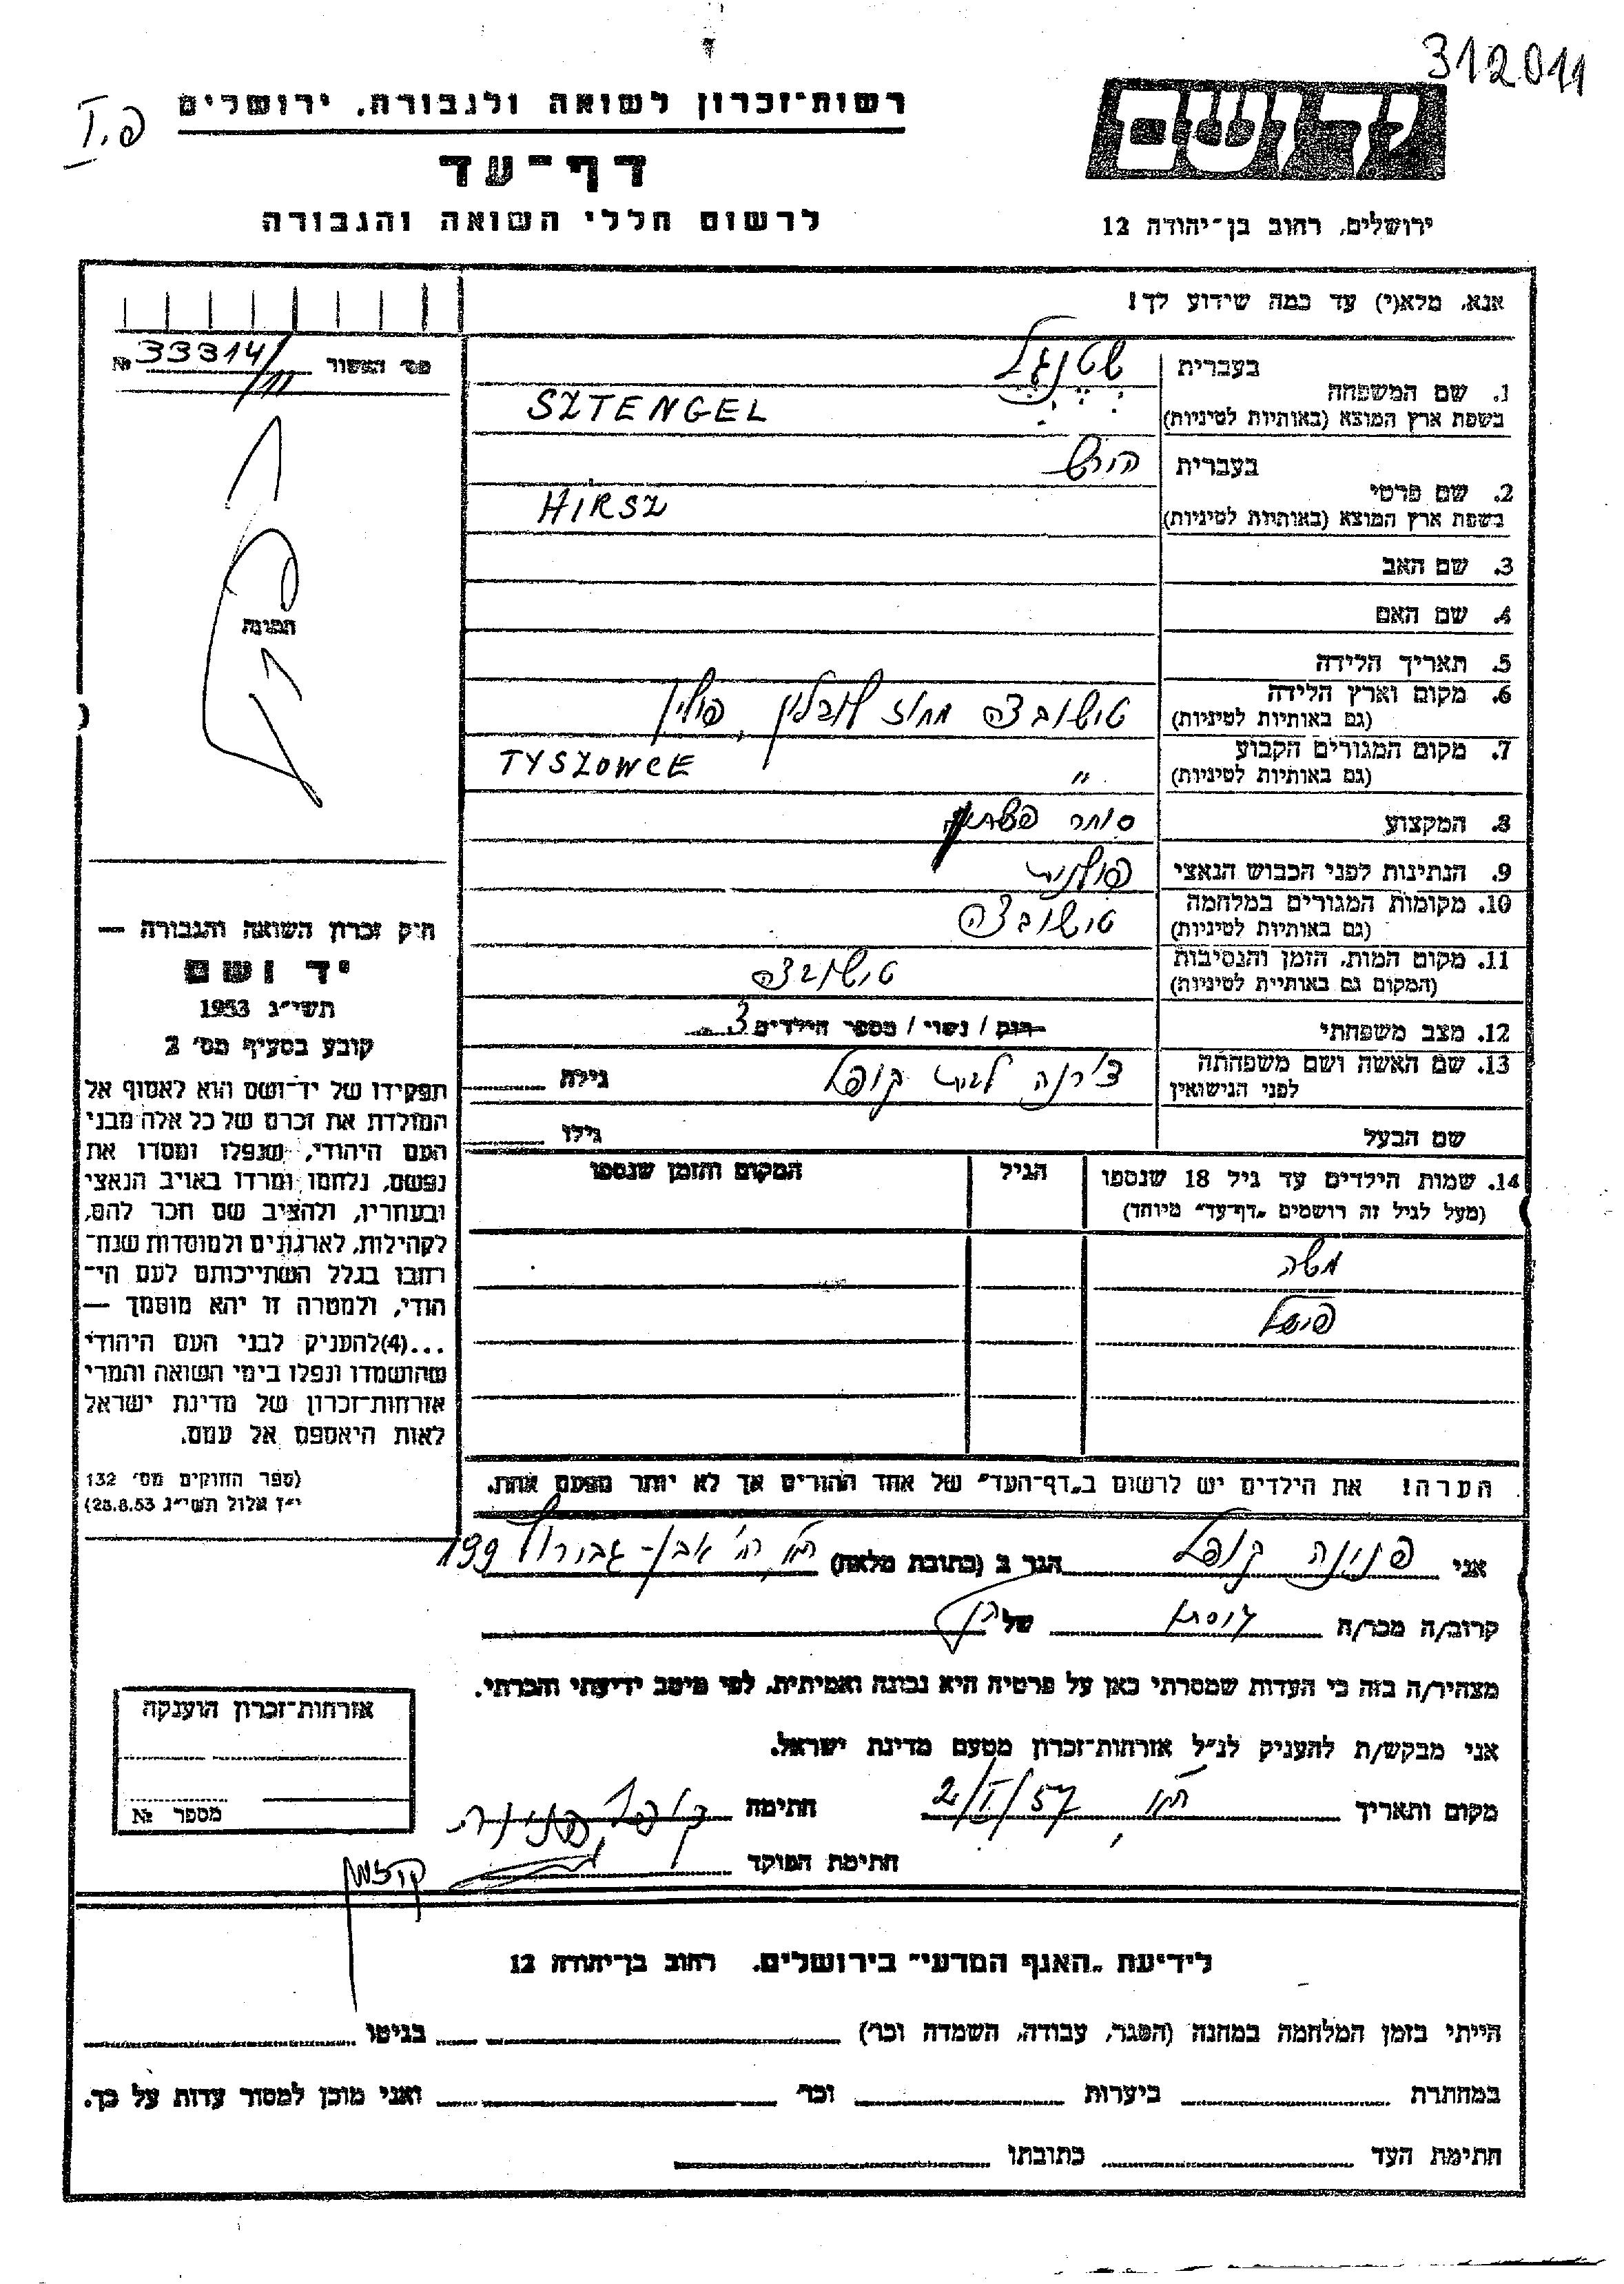 312011
רשות־זכרון לשואה ולגבורה, ירושלים
פ.I
דף־עד
לרשום חללי השואה והגבורה
יד ושם
ירושלים, רחוב בן־יהודה 12
אנא, מלא(י) עד כמה שידוע לך!
מס' האשור 33314/11 №
תמונה
1. שם המשפחה
בעברית שטנגל
בשפת ארץ המוצא (באותיות לטיניות) SZTENGEL
2. שם פרטי
בעברית הירש
בשפת ארץ המוצא (באותיות לטיניות) HIRSZ
3. שם האב
4. שם האם
5. תאריך הלידה
6. מקום וארץ הלידה טישובצה מחוז לובלין, פולין
(גם באותיות לטיניות)
7. מקום המגורים הקבוע " TYSZOWCE
(גם באותיות לטיניות)
8. המקצוע סוחר
9. הנתינות לפני הכבוש הנאצי פולנית
10. מקומות המגורים במלחמה טישובצה
(גם באותיות לטיניות)
11. מקום המות, הזמן והנסיבות טישובצה
(המקום גם באותיות לטיניות)
12. מצב משפחתי רווק / נשוי / מספר הילדים 3
13. שם האשה ושם משפחתה צ'רנה לבית קופל גילה
לפני הנישואין
שם הבעל גילו
14. שמות הילדים עד גיל 18 שנספו הגיל המקום והזמן שנספו
(מעל לגיל זה רושמים "דף־עד" מיוחד)
משה
פישל
הערה! את הילדים יש לרשום ב"דף־העד" של אחד ההורים אך לא יותר מפעם אחת.
חוק זכרון השואה והגבורה —
יד ושם
תשי״ג 1953
קובע בסעיף מס׳ 2
תפקידו של יד־ושם הוא לאסוף אל
המולדת את זכרם של כל אלה מבני
העם היהודי, שנפלו ומסרו את
נפשם, נלחמו ומרדו באויב הנאצי
ובעוזריו, ולהציב שם וזכר להם,
לקהילות, לארגונים ולמוסדות שנח־
רבו בגלל השתייכותם לעם הי־
הודי, ולמטרה זו יהא מוסמך —
...(4) להעניק לבני העם היהודי
שהושמדו ונפלו בימי השואה והמרי
אזרחות־זכרון של מדינת ישראל
לאות היאספם אל עמם.
(ספר החוקים מס׳ 132
י״ז אלול תשי״ג 28.8.53)
אני פנינה קופל הגר ב (כתובת מלאה) ת"א, רח' אבן-גבירול 199
קרוב/ה מכר/ה גיסתו של
מצהיר/ה בזה כי העדות שמסרתי כאן על פרטיה היא נכונה ואמיתית, לפי מיטב ידיעתי והכרתי.
אני מבקש/ת להעניק לנ״ל אזרחות־זכרון מטעם מדינת ישראל.
מקום ותאריך ת"א, 2/I/57 חתימה קופל פנינה
חתימת הפוקד
אזרחות־זכרון הוענקה
מספר №
לידיעת "האגף המדעי" בירושלים, רחוב בן־יהודה 12
הייתי בזמן המלחמה במחנה (הסגר, עבודה, השמדה וכו׳) בגיטו
במחתרת ביערות וכו׳ ואני מוכן למסור עדות על כך.
חתימת העד כתובתו